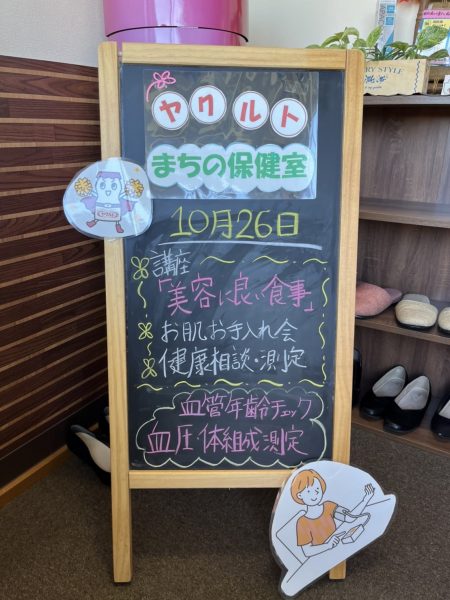 ヤクルト
まちの保健室
10月26日
講座
「美容に良い食事」
お肌お手入れ会
健康相談・測定
血管年齢チェック
血圧・体組成測定